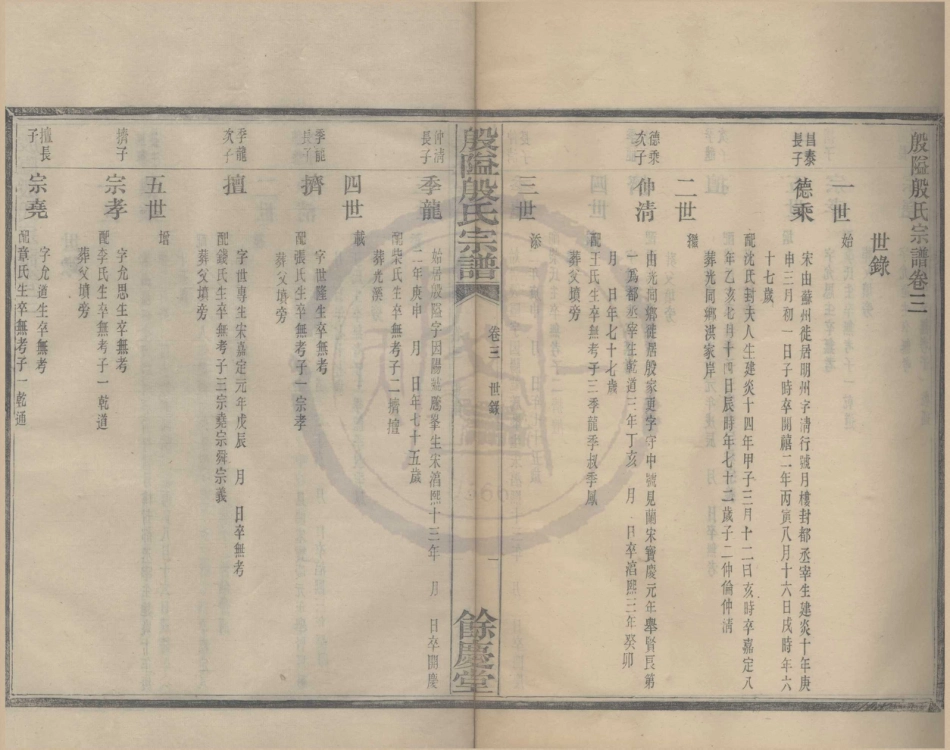 殷隘殷氏宗譜卷三
世錄
一世 始
昌泰長子 德乘 宋由蘇州徙居明州字清行號月樓封都丞宰生建炎十年庚
申三月初一日子時卒開禧二年丙寅八月十六日戌時年六
十七歲
配沈氏封夫人生建炎十四年甲子三月十二日亥時卒嘉定八
年乙亥七月十四日辰時年七十二歲子二仲倫仲清
葬光同鄉洪家岸
二世
德乘次子 仲清 由光同鄉徙居殷家更字守中號見蘭宋寶慶元年舉賢良第
一為都丞宰生乾道三年丁亥 月 日卒淳熙三年癸卯
月 日年七十七歲
配王氏生卒無考子三季龍季叔季鳳
葬父墳旁
三世 添
殷隘殷氏宗譜 卷三 世錄 一 餘慶堂
仲清長子 季龍 始居殷隘字因陽號應峯生宋淳熙十三年 月 日卒開慶
二年庚申 月 日年七十五歲
配柴氏生卒無考子二擠擅
葬光溪
四世 載
季龍長子 擠 字世隆生卒無考
配張氏生卒無考子一宗孝
葬父墳旁
季龍次子 擅 字世專生宋嘉定元年戊辰 月 日卒無考
配錢氏生卒無考子三宗堯宗舜宗義
葬父墳旁
五世 增
擠子 宗孝 字允思生卒無考
配李氏生卒無考子一乾道
葬父墳旁
擅長子 宗堯 字允道生卒無考
配章氏生卒無考子一乾通